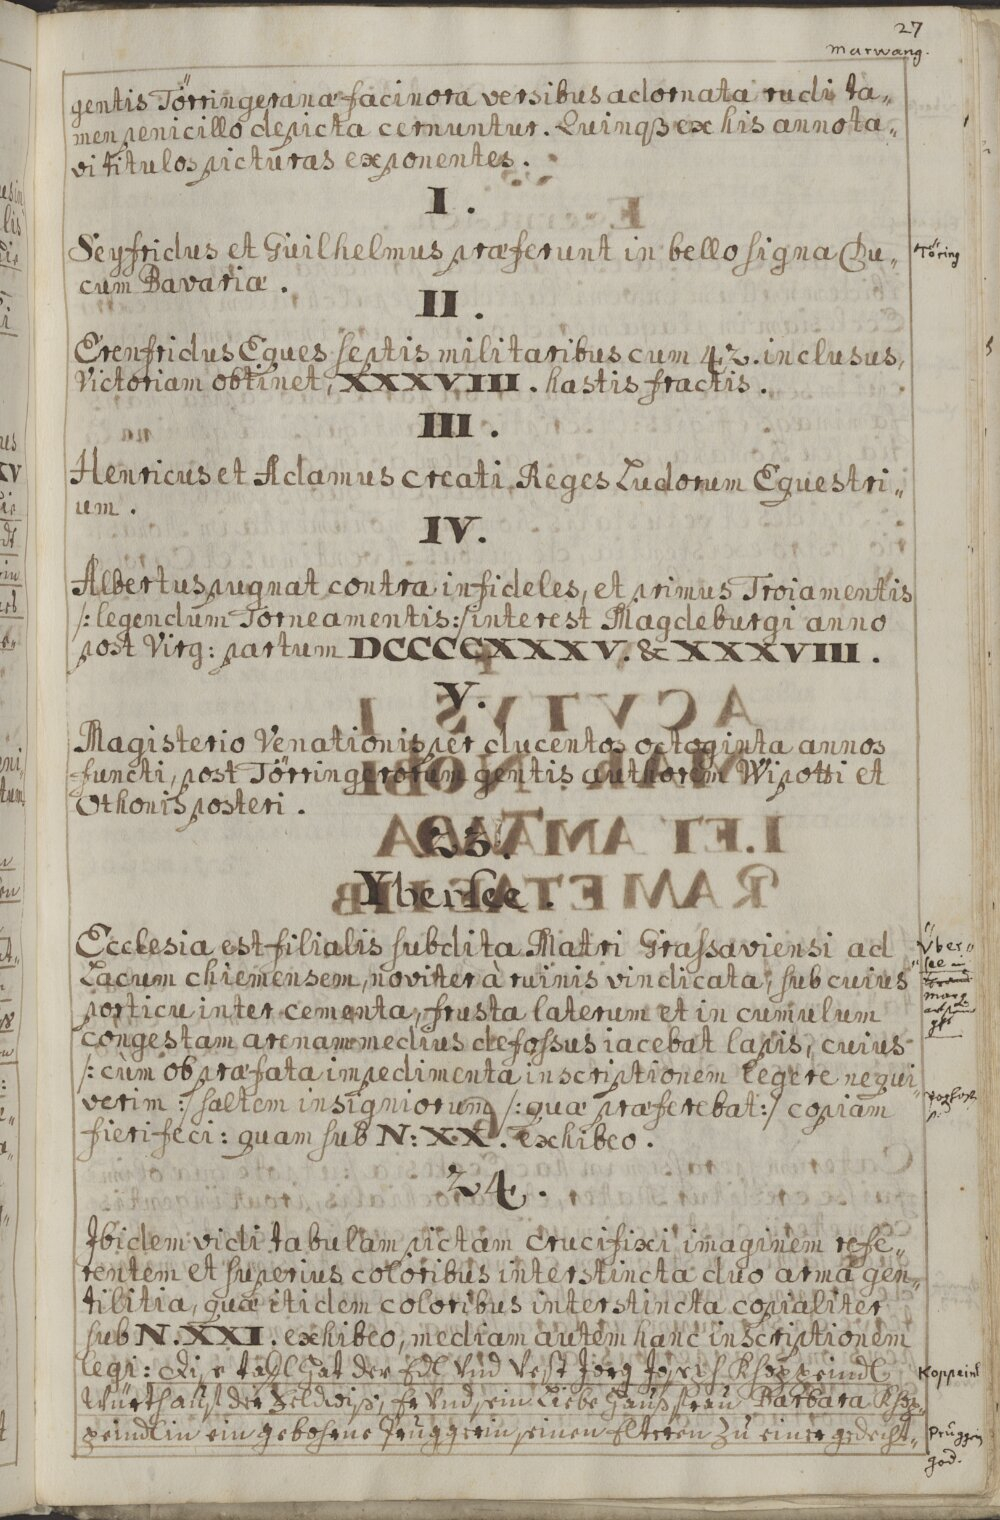 27
Marwang.
gentis Törringeranæ facinora versibus adornata rudi ta„
men penicillo depicta cernuntur. Quinqȝ ex his annota„
vi titulos picturas exponentes.
I.
Seyfridus et Guilhelmus præferunt in bello signa Du„
cum Bavariæ.
Töring
II.
Erenfridus Eques septis militaribus cum 42. inclusus,
Victoriam obtinet, XXXVIII. hastis fractis.
III.
Henricus et Adamus creati Reges Ludorum Equestri„
um.
IV.
Albertus pugnat contra infideles, et primus Troiamentis
/: legendum Torneamentis :/ interest Magdeburgi anno
post Virg: partum DCCCCXXXV. & XXXVIII.
V.
Magisterio Venationis per ducentos octoginta annos
functi, post Törringerorum gentis authorem Wipotti et
Othonis posteri.
23.
Ybersee.
Ecclesia est filialis subdita Matri Grassaviensi ad
Lacum chiemensem, noviter à ruinis vindicata, sub cuius
porticu inter cementa, frusta laterum et in cumulum
congestam arenam medius defossus iacebat lapis, cuius
/: cùm ob præfata impedimenta inscriptionem legere nequi„
verim :/ saltem insigniorum /: quæ præferebat :/ copiam
fieri feci: quam sub N: XX. exhibeo.
Über„
see
24.
Ibidem vidi tabulam pictam Crucifixi imaginem refe„
rentem et superius coloribus interstincta duo arma gen„
tilitia, quæ itidem coloribus interstincta copialiter
sub N. XXI. exhibeo, mediam autem hanc inscriptionem
legi: Dise tafl Hat der Edl Vnd Vest Jörg Joseph Khoppeindl
Würth auf der Feldwiß, Er Vnd sein Liebe Haußfrau Barbara Khop„
peindlin ein gebohrne Pruggerin seinen Elteren Zu einer gedecht„
Koppeindl
Prugger